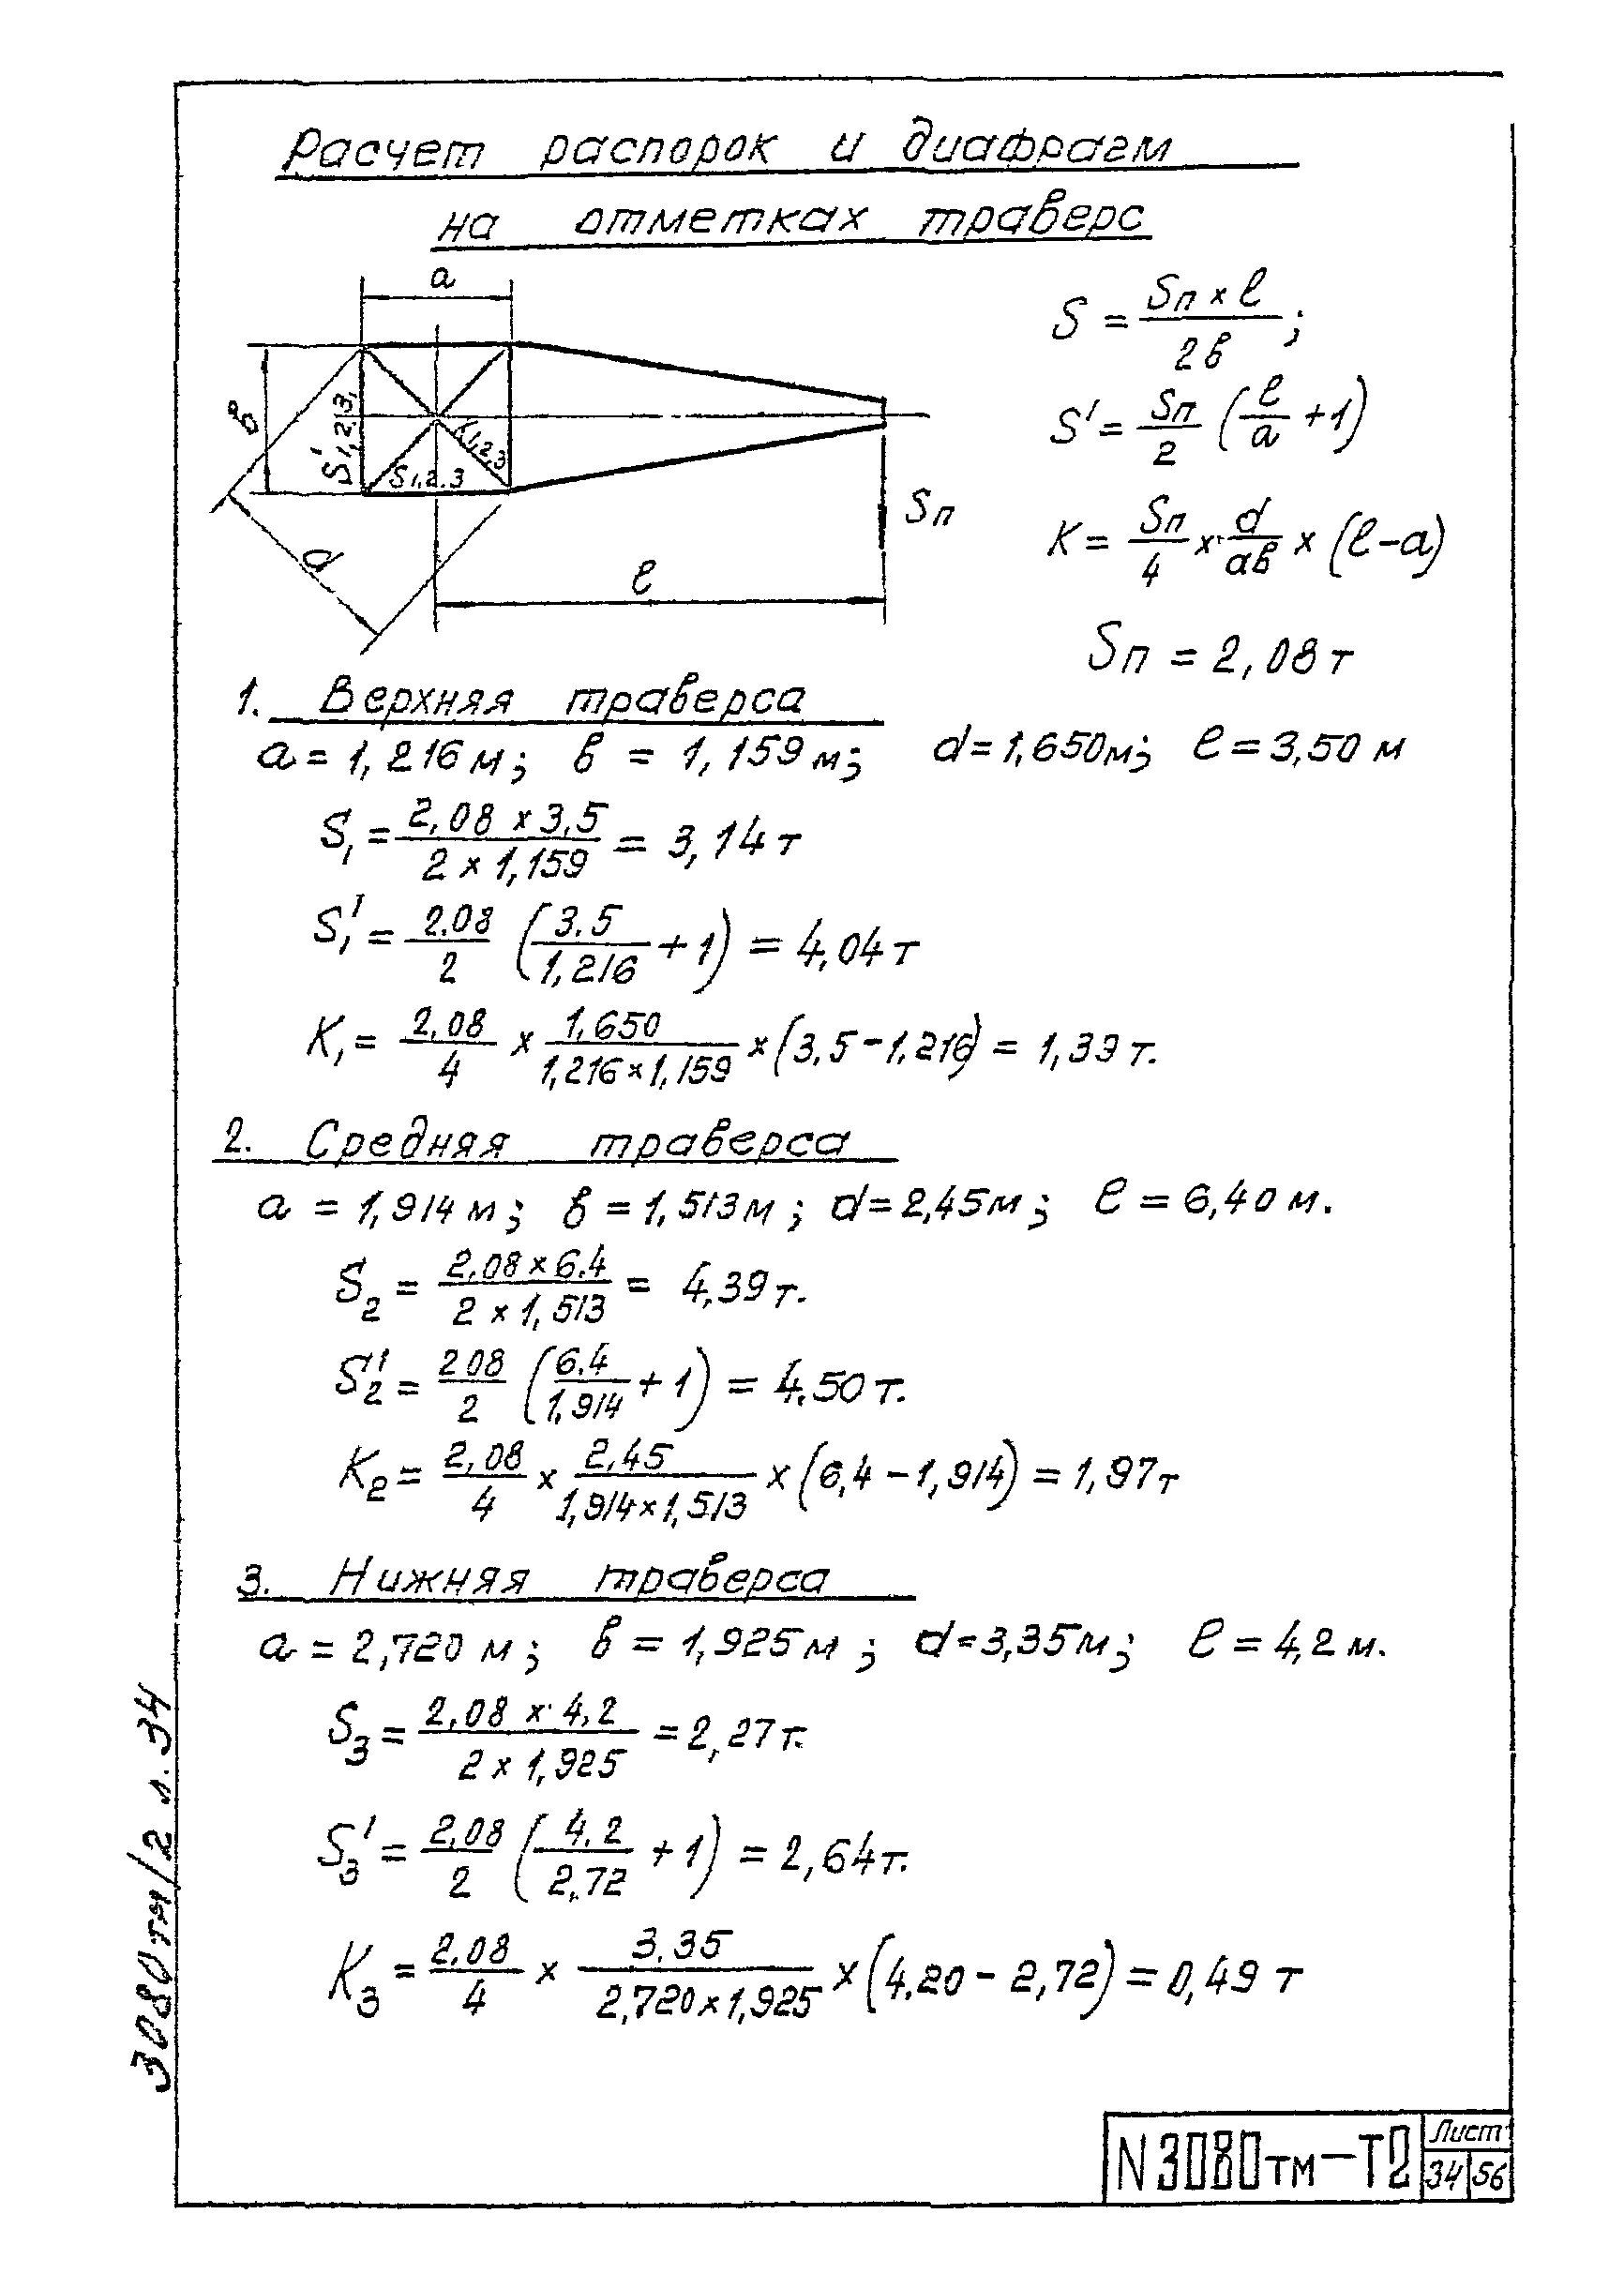 Расчет распорок и диафрагм
на отметках траверс
a
в
S'1,2,3,
K1,2,3
S1,2.3
d
l
Sп
S = Sп × l / 2в ;
S' = Sп / 2 (l / a + 1)
K = Sп / 4 × d / aв × (l – a)
Sп = 2,08 т
1. Верхняя траверса
a = 1,216 м; в = 1,159 м; d = 1,650м; l = 3,50 м
S1 = 2,08 × 3,5 / 2 × 1,159 = 3,14 т
S1' = 2.08 / 2 (3.5 / 1,216 + 1) = 4,04 т
K1 = 2,08 / 4 × 1,650 / 1,216 × 1,159 × (3,5 – 1,216) = 1,39 т.
2. Средняя траверса
a = 1,914 м; в = 1,513 м; d = 2,45 м; l = 6,40 м.
S2 = 2,08 × 6.4 / 2 × 1,513 = 4,39 т.
S2' = 2 08 / 2 (6.4 / 1,914 + 1) = 4.50 т.
K2 = 2,08 / 4 × 2,45 / 1,914 × 1,513 × (6,4 – 1,914) = 1,97 т
3. Нижняя траверса
a = 2,720 м; в = 1,925 м; d = 3,35 м; l = 4,2 м.
S3 = 2,08 × 4,2 / 2 × 1,925 = 2,27 т.
S3' = 2,08 / 2 (4.2 / 2,72 + 1) = 2,64 т.
K3 = 2.08 / 4 × 3.35 / 2,720 × 1,925 × (4.20 – 2,72) = 0,49 т
3080тм/2 л. 34
N 3080тм–Т2
Лист
34 56